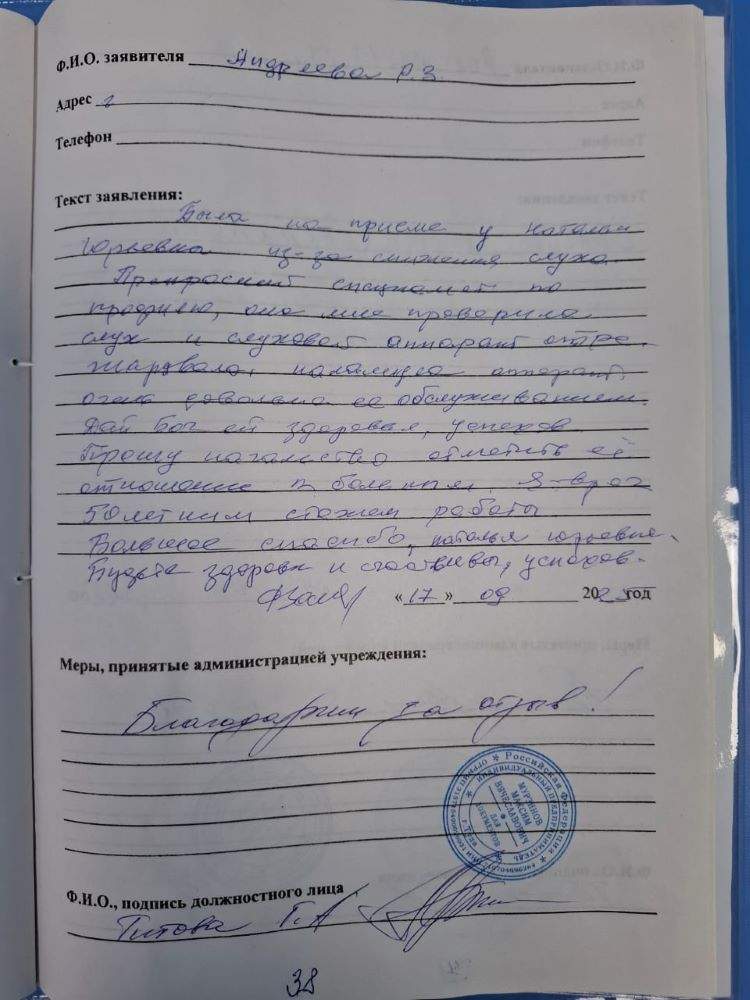 Ф.И.О. заявителя Андреева Р.З.
Адрес г
Телефон
Текст заявления:
Была на приеме у Натальи
Юрьевна из-за снижения слуха.
Прекрасный специалист по
она мне проверила
слух и слуховой аппарат отре-
аппарат.
очень довольна ее обслуживанием.
Дай Бог ей здоровья, успехов
Прошу начальство отметить её
отношение к больным. Я-врач
50летним стажем работы
Большое спасибо, Наталья Юрьевна.
Будьте здоровы и счастливы, успехов.
«17» 09 2025 год
Меры, принятые администрацией учреждения:
Благодарим за отзыв!
Российская Федерация
ИНДИВИДУАЛЬНЫЙ ПРЕДПРИНИМАТЕЛЬ
МАКСИМ
ВЯЧЕСЛАВОВИЧ
ДЛЯ
ДОКУМЕНТОВ
Ф.И.О., подпись должностного лица
Титова Т.А
38